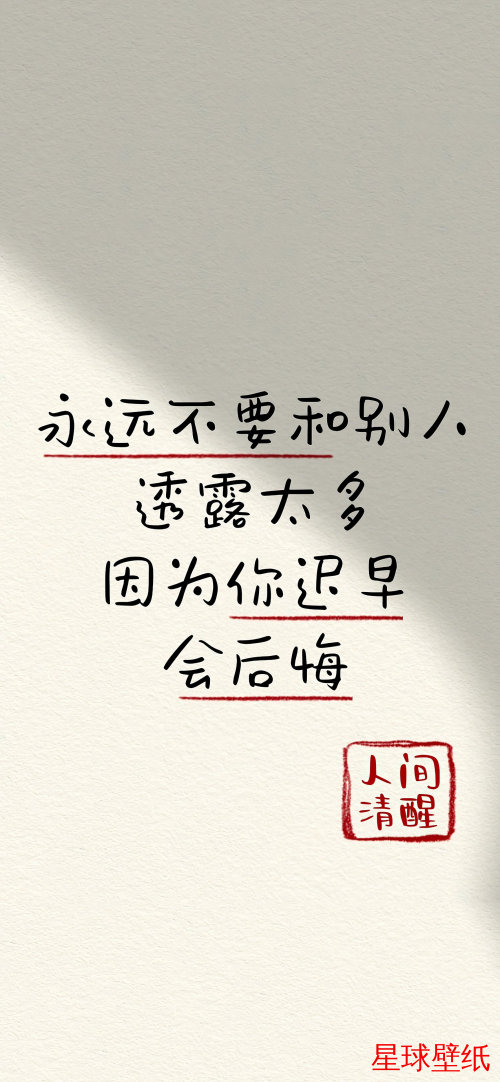 永远不要和别人
透露太多
因为你迟早
会后悔
人间
清醒
星球壁纸